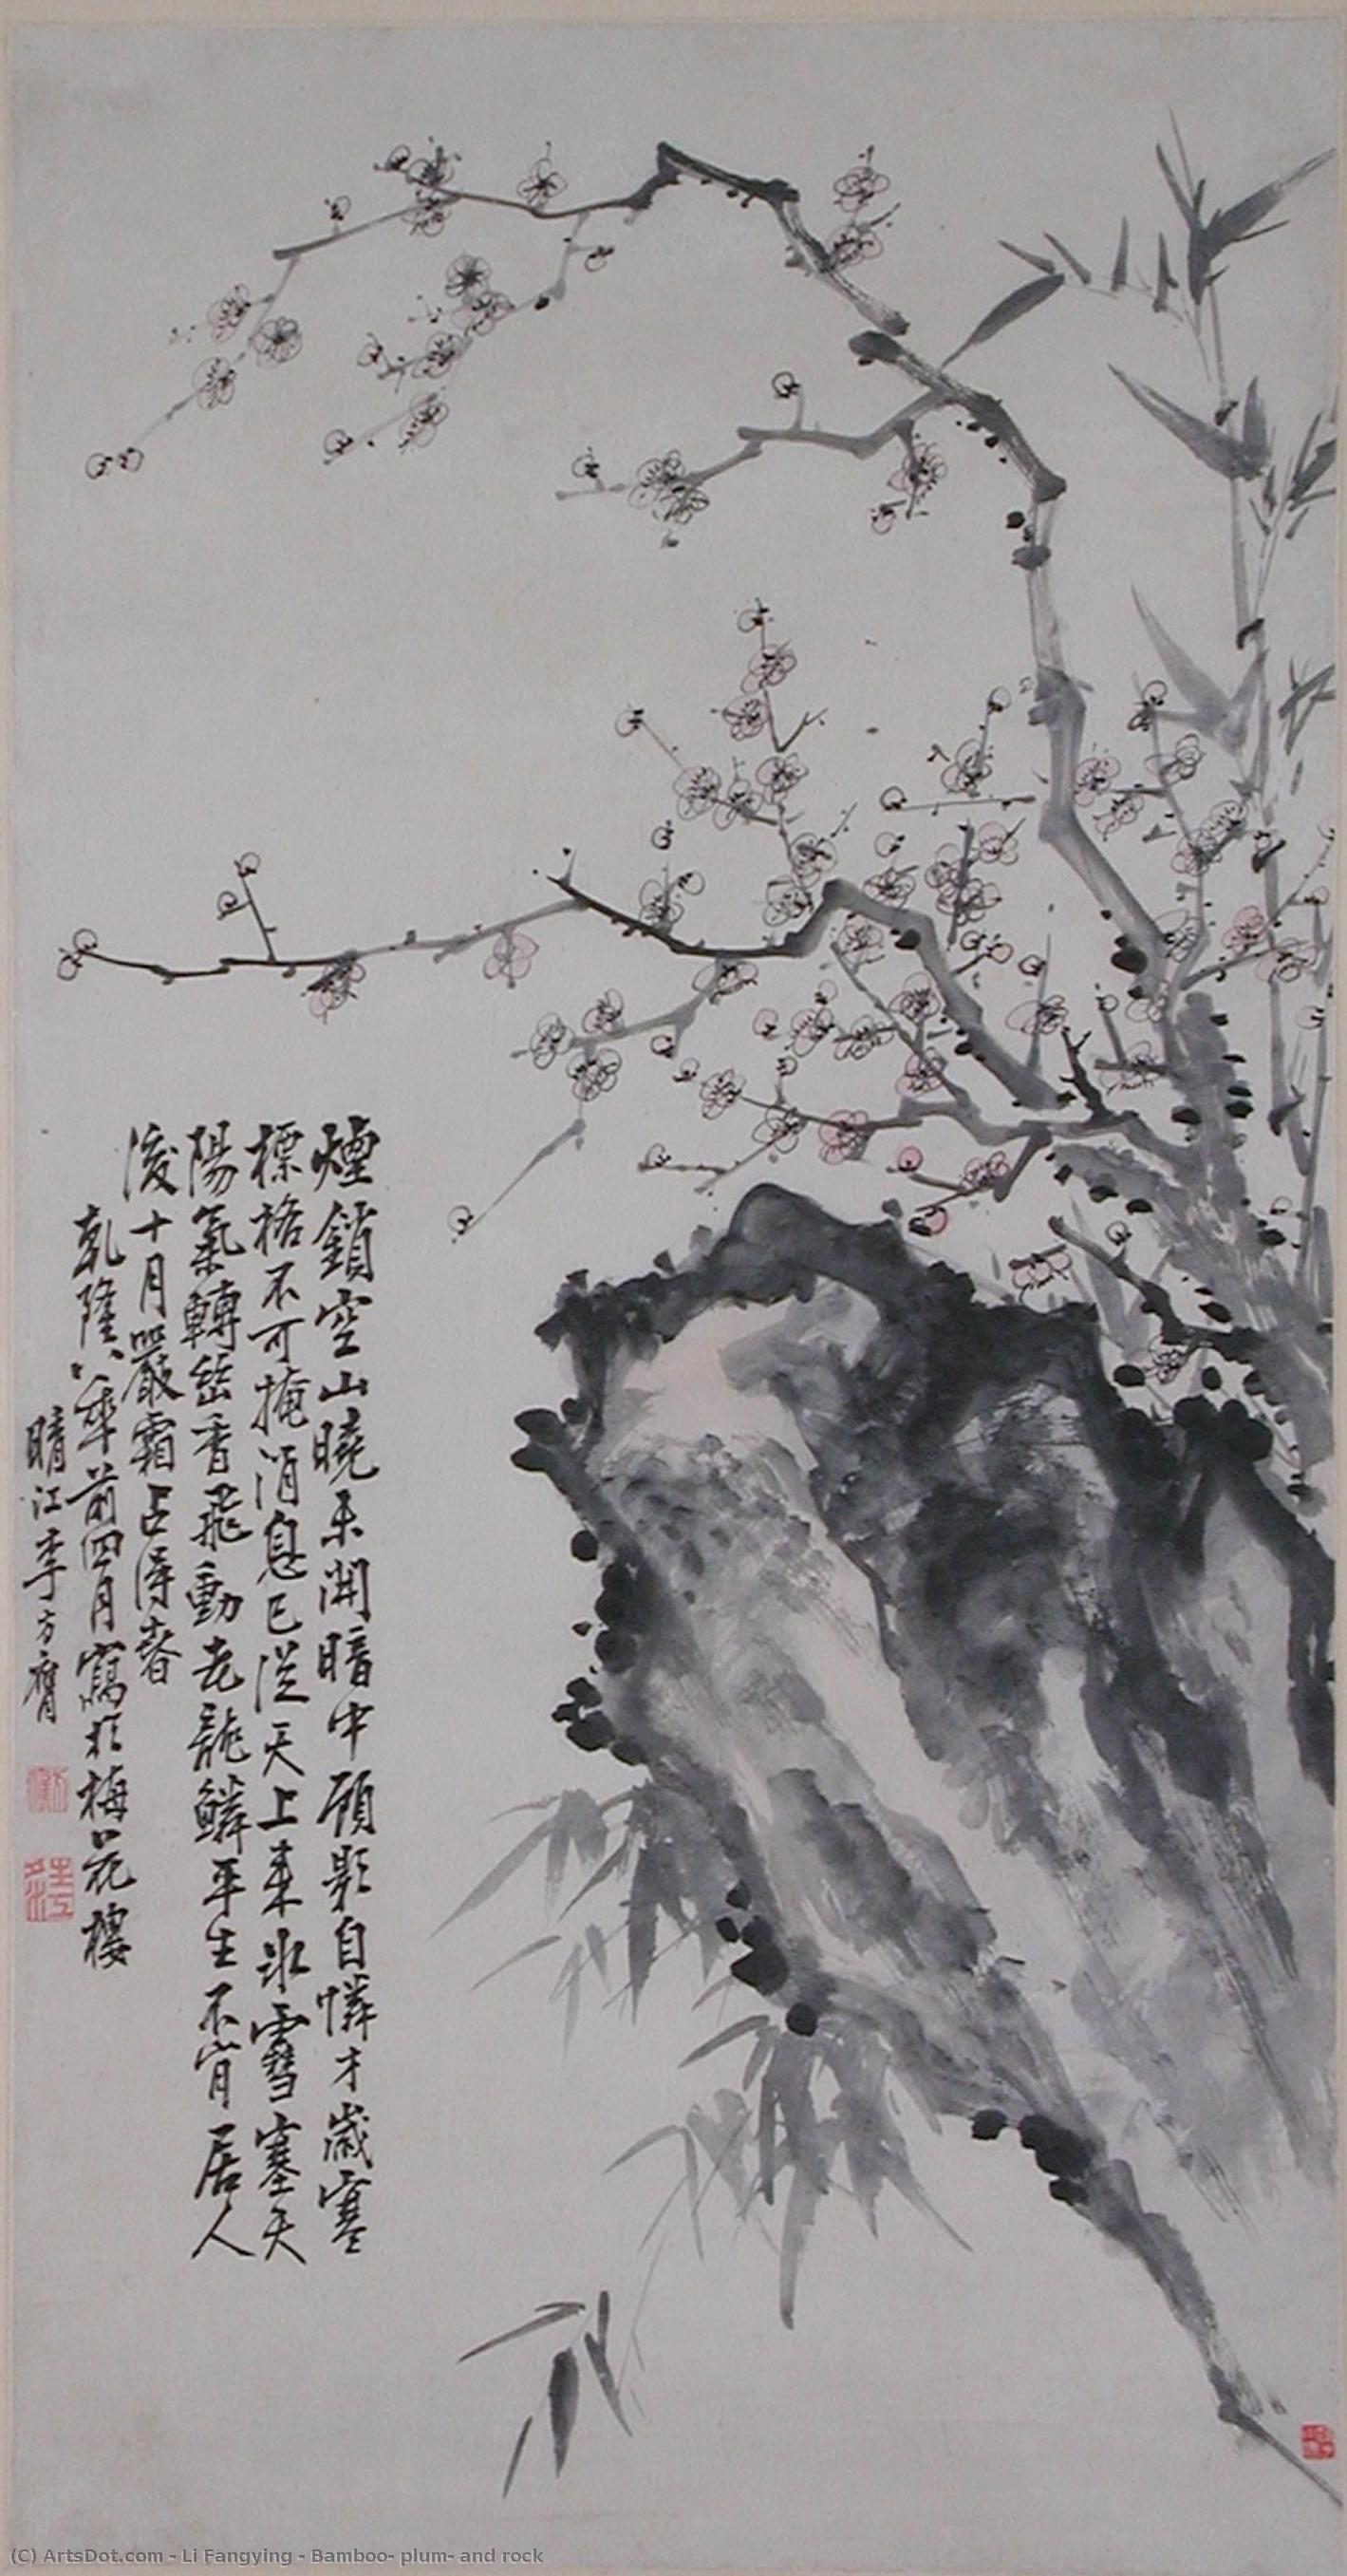 煙鎖空山曉未開暗中顧影自憐才歲寒
標格不可掩消息已從天上來冰雪塞天
陽氣轉幽香飛動老龍鱗平生不肯居人
後十月嚴霜占得春
乾隆八年前四月寫於梅花樓
晴江李方膺
(C) ArtsDot.com - Li Fangying - Bamboo- plum- and rock